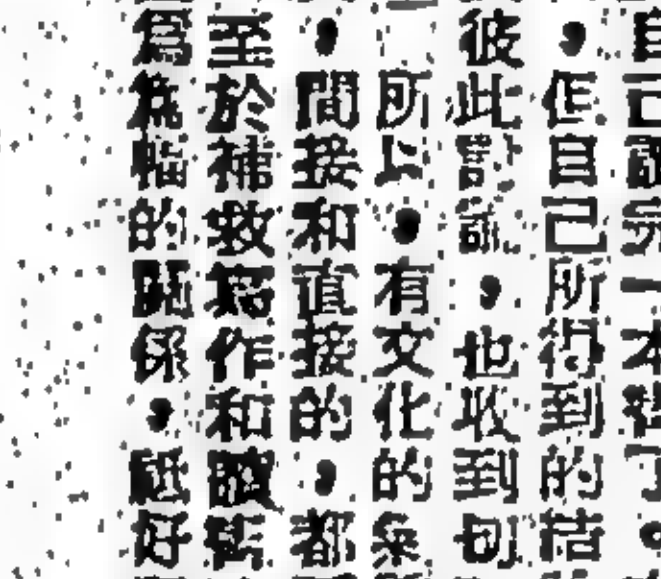 自己讀完一本書了。
，但自己所得到的結
彼此討論，也收到切
所以，有文化的
，間接和直接的，都
至於補救寫作和
為篇幅的關係，只好